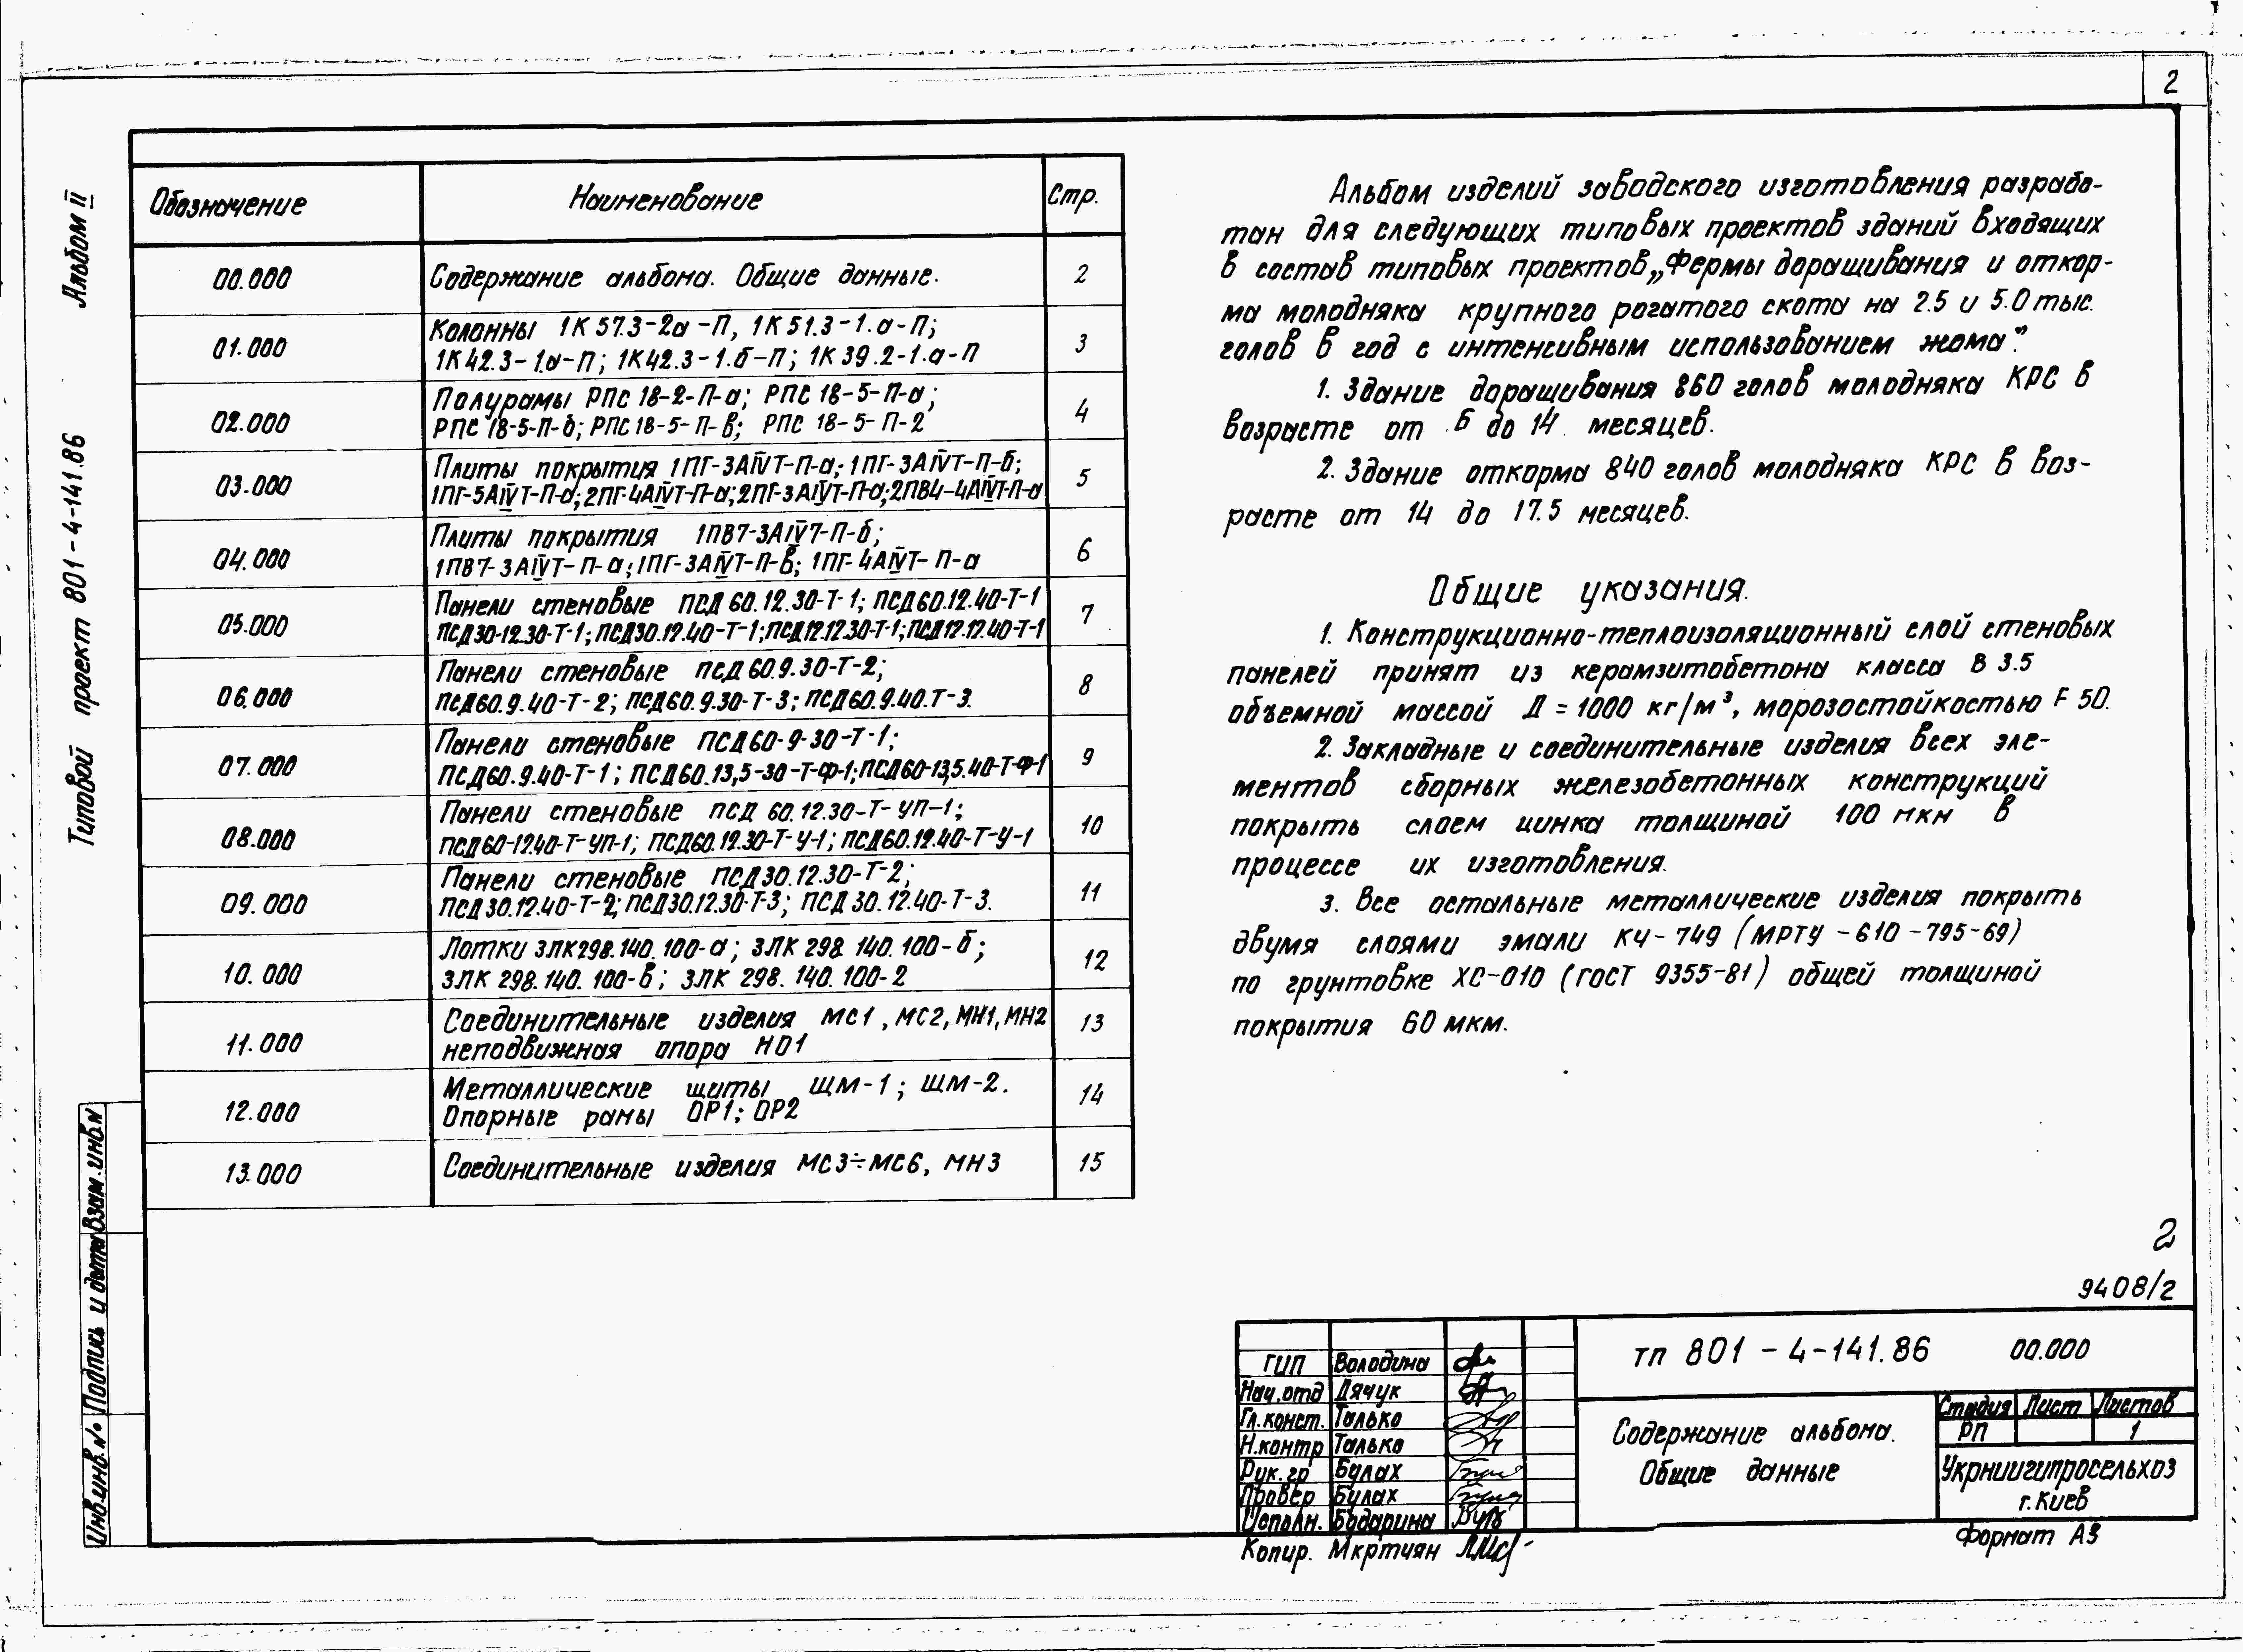 2
Альбом II
Типовой проект 801-4-141.86
Обозначение Наименование Стр.
00.000 Содержание альбома. Общие данные. 2
01.000 Колонны 1К57.3-2а-П, 1К51.3-1.а-П; 3
1К42.3-1.а-П; 1К42.3-1.б-П; 1К39.2-1.а-П
02.000 Полурамы РПС 18-2-П-а; РПС 18-5-П-а; 4
РПС 18-5-П-б; РПС 18-5-П-в; РПС 18-5-П-2
03.000 Плиты покрытия 1ПГ-3АIVТ-П-а; 1ПГ-3АIVТ-П-б; 5
1ПГ-5АIVТ-П-а; 2ПГ-4АIVТ-П-а; 2ПГ-3АIVТ-П-а; 2ПВ4-4АIVТ-П-а
04.000 Плиты покрытия 1ПВ7-3АIV7-П-б; 6
1ПВ7-3АIVТ-П-а; 1ПГ-3АIVТ-П-в; 1ПГ-4АIVТ-П-а
05.000 Панели стеновые ПСД 60.12.30-Т-1; ПСД60.12.40-Т-1 7
ПСД30-12.30-Т-1; ПСД30.12.40-Т-1; ПСД12.12.30-Т-1; ПСД12.12.40-Т-1
06.000 Панели стеновые ПСД 60.9.30-Т-2; 8
ПСД60.9.40-Т-2; ПСД60.9.30-Т-3; ПСД60.9.40.Т-3.
07.000 Панели стеновые ПСД60-9-30-Т-1; 9
ПСД60.9.40-Т-1; ПСД60.13,5-30-Т-Ф-1; ПСД60-13,5.40-Т-Ф-1
08.000 Панели стеновые ПСД 60.12.30-Т-УП-1; 10
ПСД60-12.40-Т-УП-1; ПСД60.12.30-Т-У-1; ПСД60.12.40-Т-У-1
09.000 Панели стеновые ПСД30.12.30-Т-2; 11
ПСД30.12.40-Т-2; ПСД30.12.30-Т-3; ПСД30.12.40-Т-3.
10.000 Лотки 3ЛК298.140.100-а; 3ЛК 298.140.100-б; 12
3ЛК 298.140.100-в; 3ЛК 298.140.100-2
11.000 Соединительные изделия МС1, МС2, МН1, МН2 13
неподвижная опора НО1
12.000 Металлические щиты ЩМ-1; ЩМ-2. 14
Опорные рамы ОР1; ОР2
13.000 Соединительные изделия МС3÷МС6, МН3 15
Альбом изделий заводского изготовления разрабо-
тан для следующих типовых проектов зданий входящих
в состав типовых проектов „Фермы доращивания и откор-
ма молодняка крупного рогатого скота на 2.5 и 5.0 тыс.
голов в год с интенсивным использованием жома".
1. Здание доращивания 860 голов молодняка КРС в
возрасте от 6 до 14 месяцев.
2. Здание откорма 840 голов молодняка КРС в воз-
расте от 14 до 17.5 месяцев.
Общие указания.
1. Конструкционно-теплоизоляционный слой стеновых
панелей принят из керамзитобетона класса В 3.5
объемной массой Д = 1000 кг/м³, морозостойкостью F 50.
2. Закладные и соединительные изделия всех эле-
ментов сборных железобетонных конструкций
покрыть слоем цинка толщиной 100 мкм в
процессе их изготовления.
3. Все остальные металлические изделия покрыть
двумя слоями эмали КЧ-749 (МРТУ-610-795-69)
по грунтовке ХС-010 (ГОСТ 9355-81) общей толщиной
покрытия 60 мкм.
2
9408/2
ТП 801-4-141.86 00.000
ГИП Володина
Нач.отд Дячук
Гл.конст. Талько
Н.контр Талько
Рук.гр Булах
Провер Булах
Исполн. Бударина
Содержание альбома.
Общие данные
Стадия Лист Листов
РП 1
Укрниигипросельхоз
г.Киев
Копир. Мкртчян
Формат А3
Взам.инв.№
Подпись и дата
Инв.инв.№